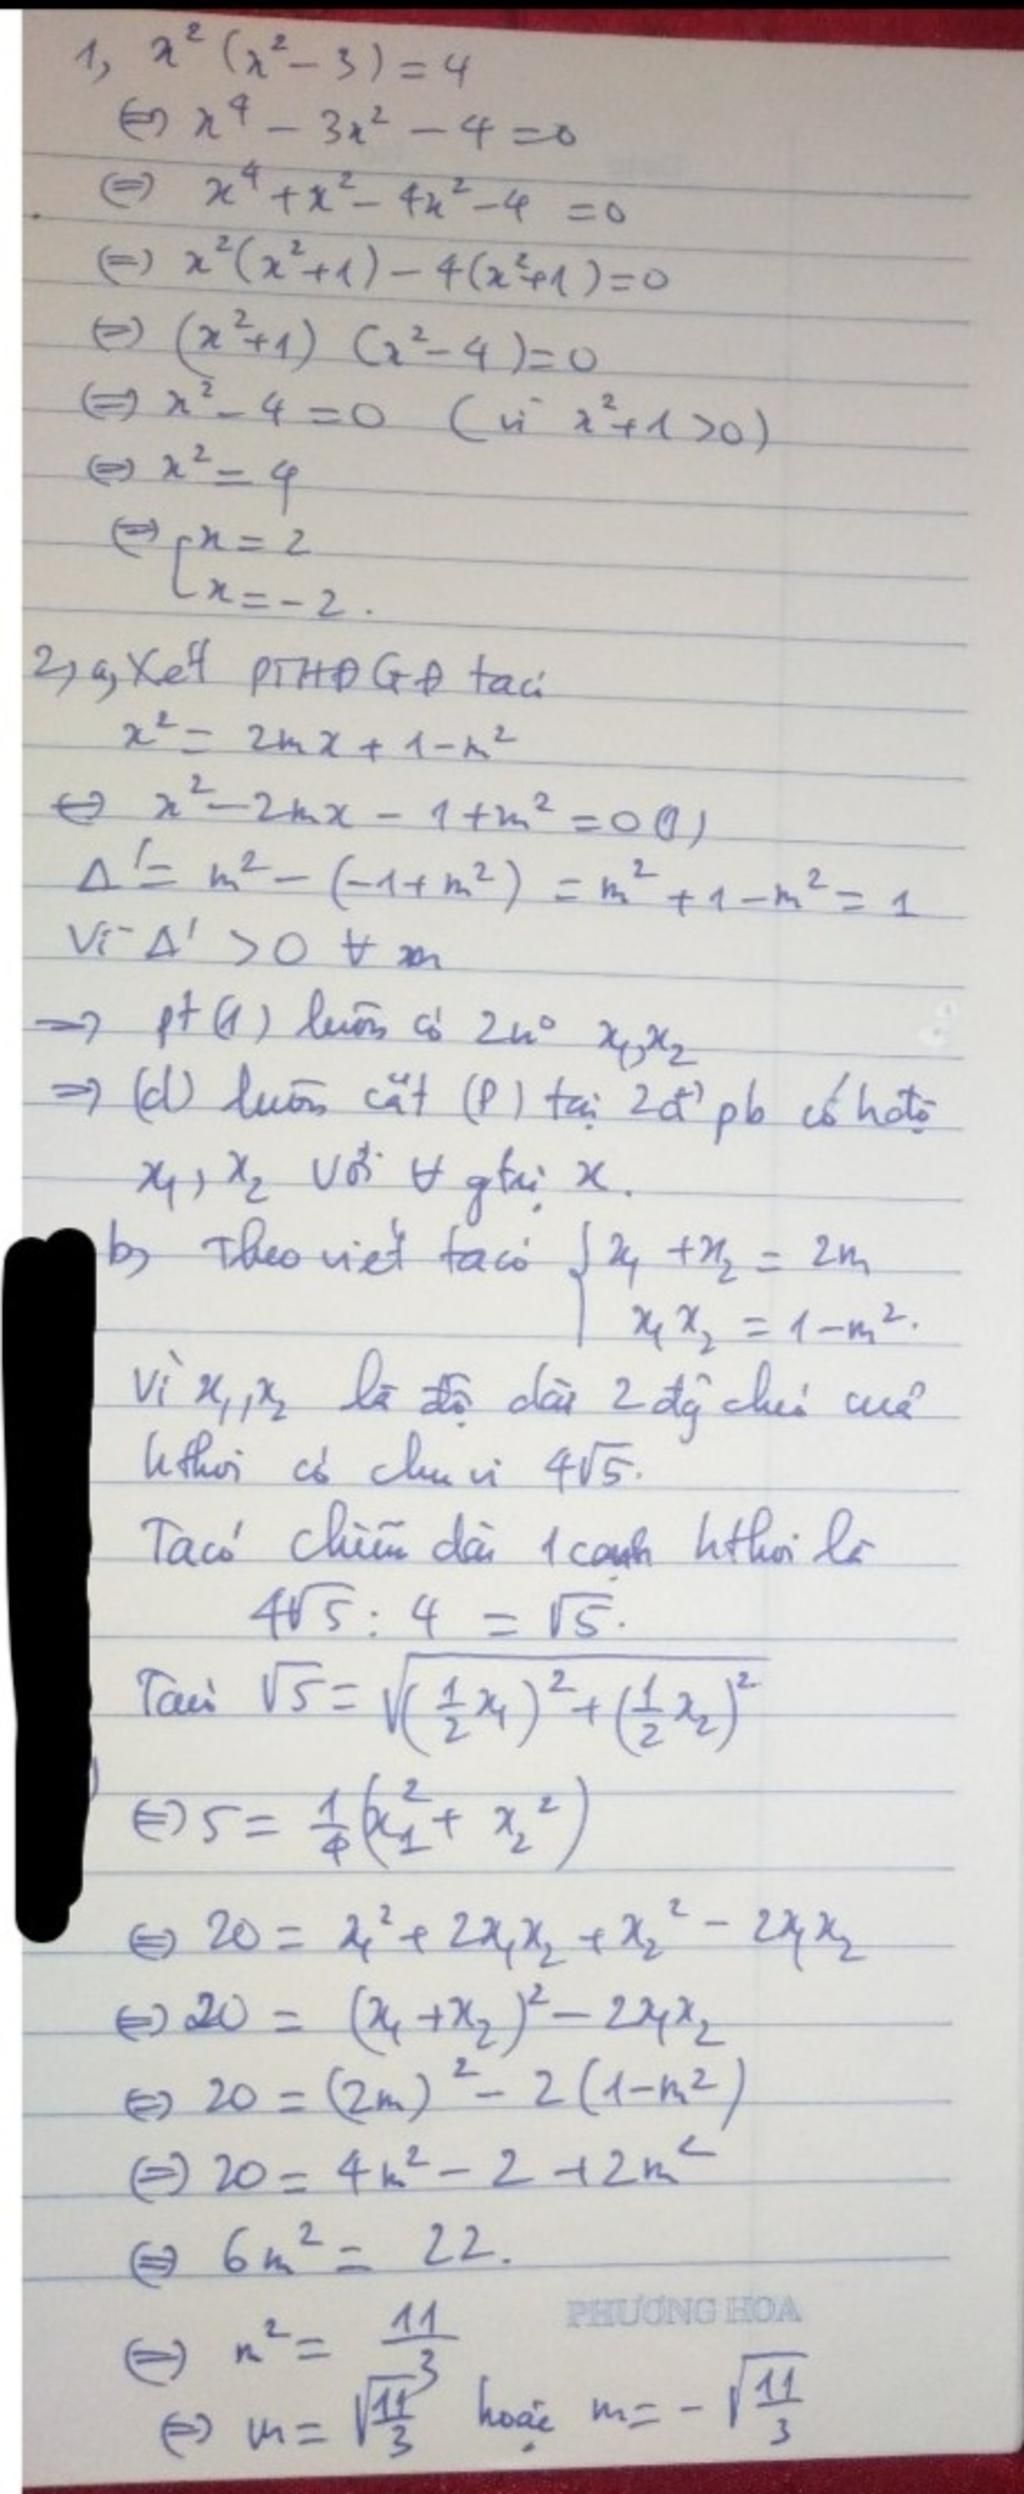 1, x² (x² - 3) = 4
⇔ x⁴ - 3x² - 4 = 0
⇔ x⁴ + x² - 4x² - 4 = 0
⇔ x²(x²+1) - 4(x²+1) = 0
⇔ (x²+1) (x²-4) = 0
⇔ x² - 4 = 0 (vì x²+1 >0)
⇔ x² = 4
⇔ [x = 2
x = -2.
2, a, Xét PTHĐGĐ ta có
x² = 2mx + 1 - m²
⇔ x² - 2mx - 1 + m² = 0 (1)
Δ' = m² - (-1+m²) = m² + 1 - m² = 1
Vì Δ' > 0 ∀ m
⇒ pt (1) luôn có 2n⁰ x₁, x₂
⇒ (d) luôn cắt (P) tại 2đ' pb có hđộ
x₁, x₂ với ∀ gtrị x.
b, Theo viét ta có { x₁ + x₂ = 2m
x₁ x₂ = 1 - m².
Vì x₁, x₂ là độ dài 2 đg chéo của
hthoi có chu vi 4√5.
Ta có chiều dài 1 cạnh hthoi là
4√5 : 4 = √5.
Ta có √5 = √(½ x₁)² + (½ x₂)²
⇔ 5 = ¼ (x₁² + x₂²)
⇔ 20 = x₁² + 2x₁x₂ + x₂² - 2x₁x₂
⇔ 20 = (x₁ + x₂)² - 2x₁x₂
⇔ 20 = (2m)² - 2(1-m²)
⇔ 20 = 4m² - 2 + 2m²
⇔ 6m² = 22.
PHƯƠNG HOA
⇔ m² = 11/3
⇔ m = √11/3 hoặc m = -√11/3